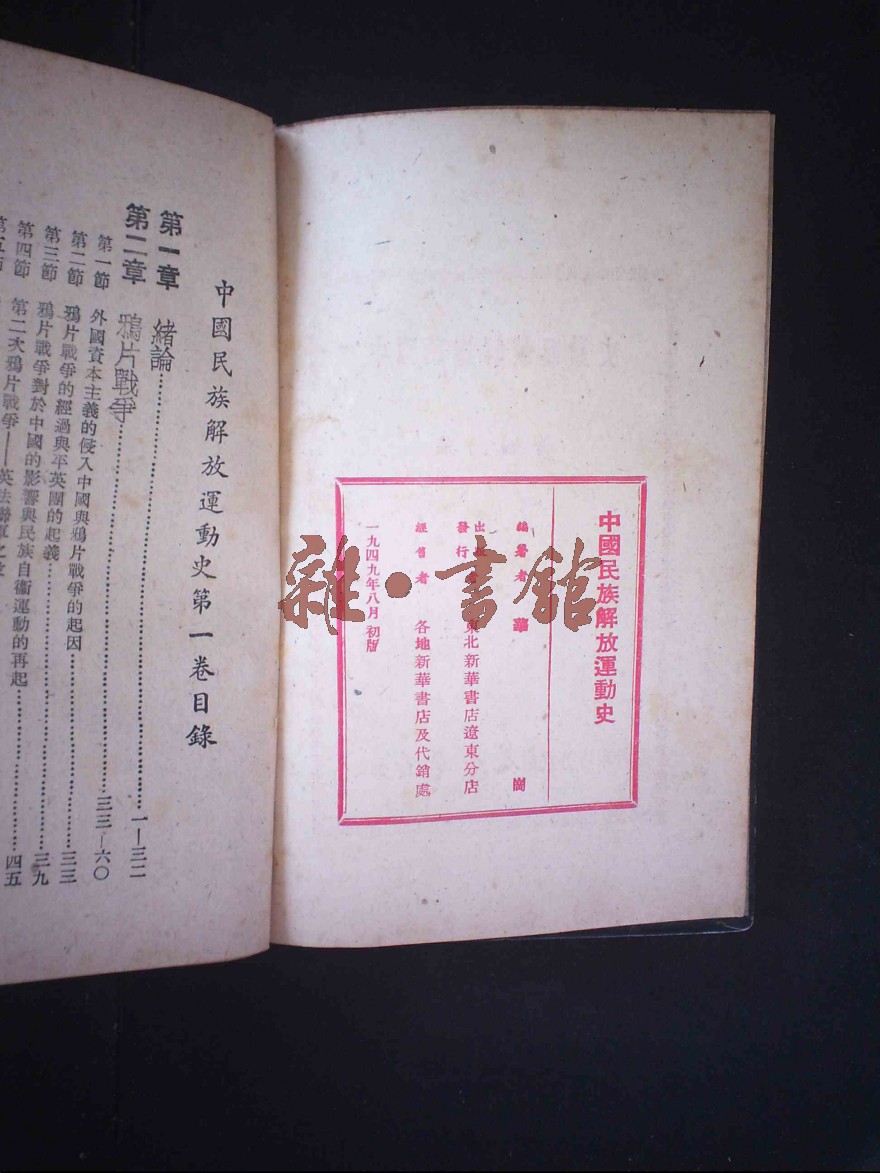 中國民族解放運動史
編著者 華 崗
發行 東北新華書店遼東分店
經售者 各地新華書店及代銷處
一九四九年八月初版
雜·書館
中國民族解放運動史第一卷目錄
第一章 緒論 一—三二
第二章 鴉片戰爭 三三—六〇
第一節 外國資本主義的侵入中國與鴉片戰爭的起因 三三
第二節 鴉片戰爭的經過與平英團的起義 三九
第三節 鴉片戰爭對於中國的影響與民族自衛運動的再起 四五
第四節 第二次鴉片戰爭——英法聯軍之役
第五節